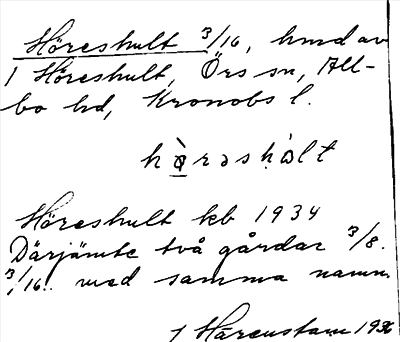 Höreshult 3/16, hmd av
1 Höreshult, Örs sn, All-
bo hd, Kronobs l.
hǫ̀rəshàlt
Höreshult kb 1934
Därjämte två gårdar 3/8.
3/16.. med samma namn.
J Hårenstam 1936